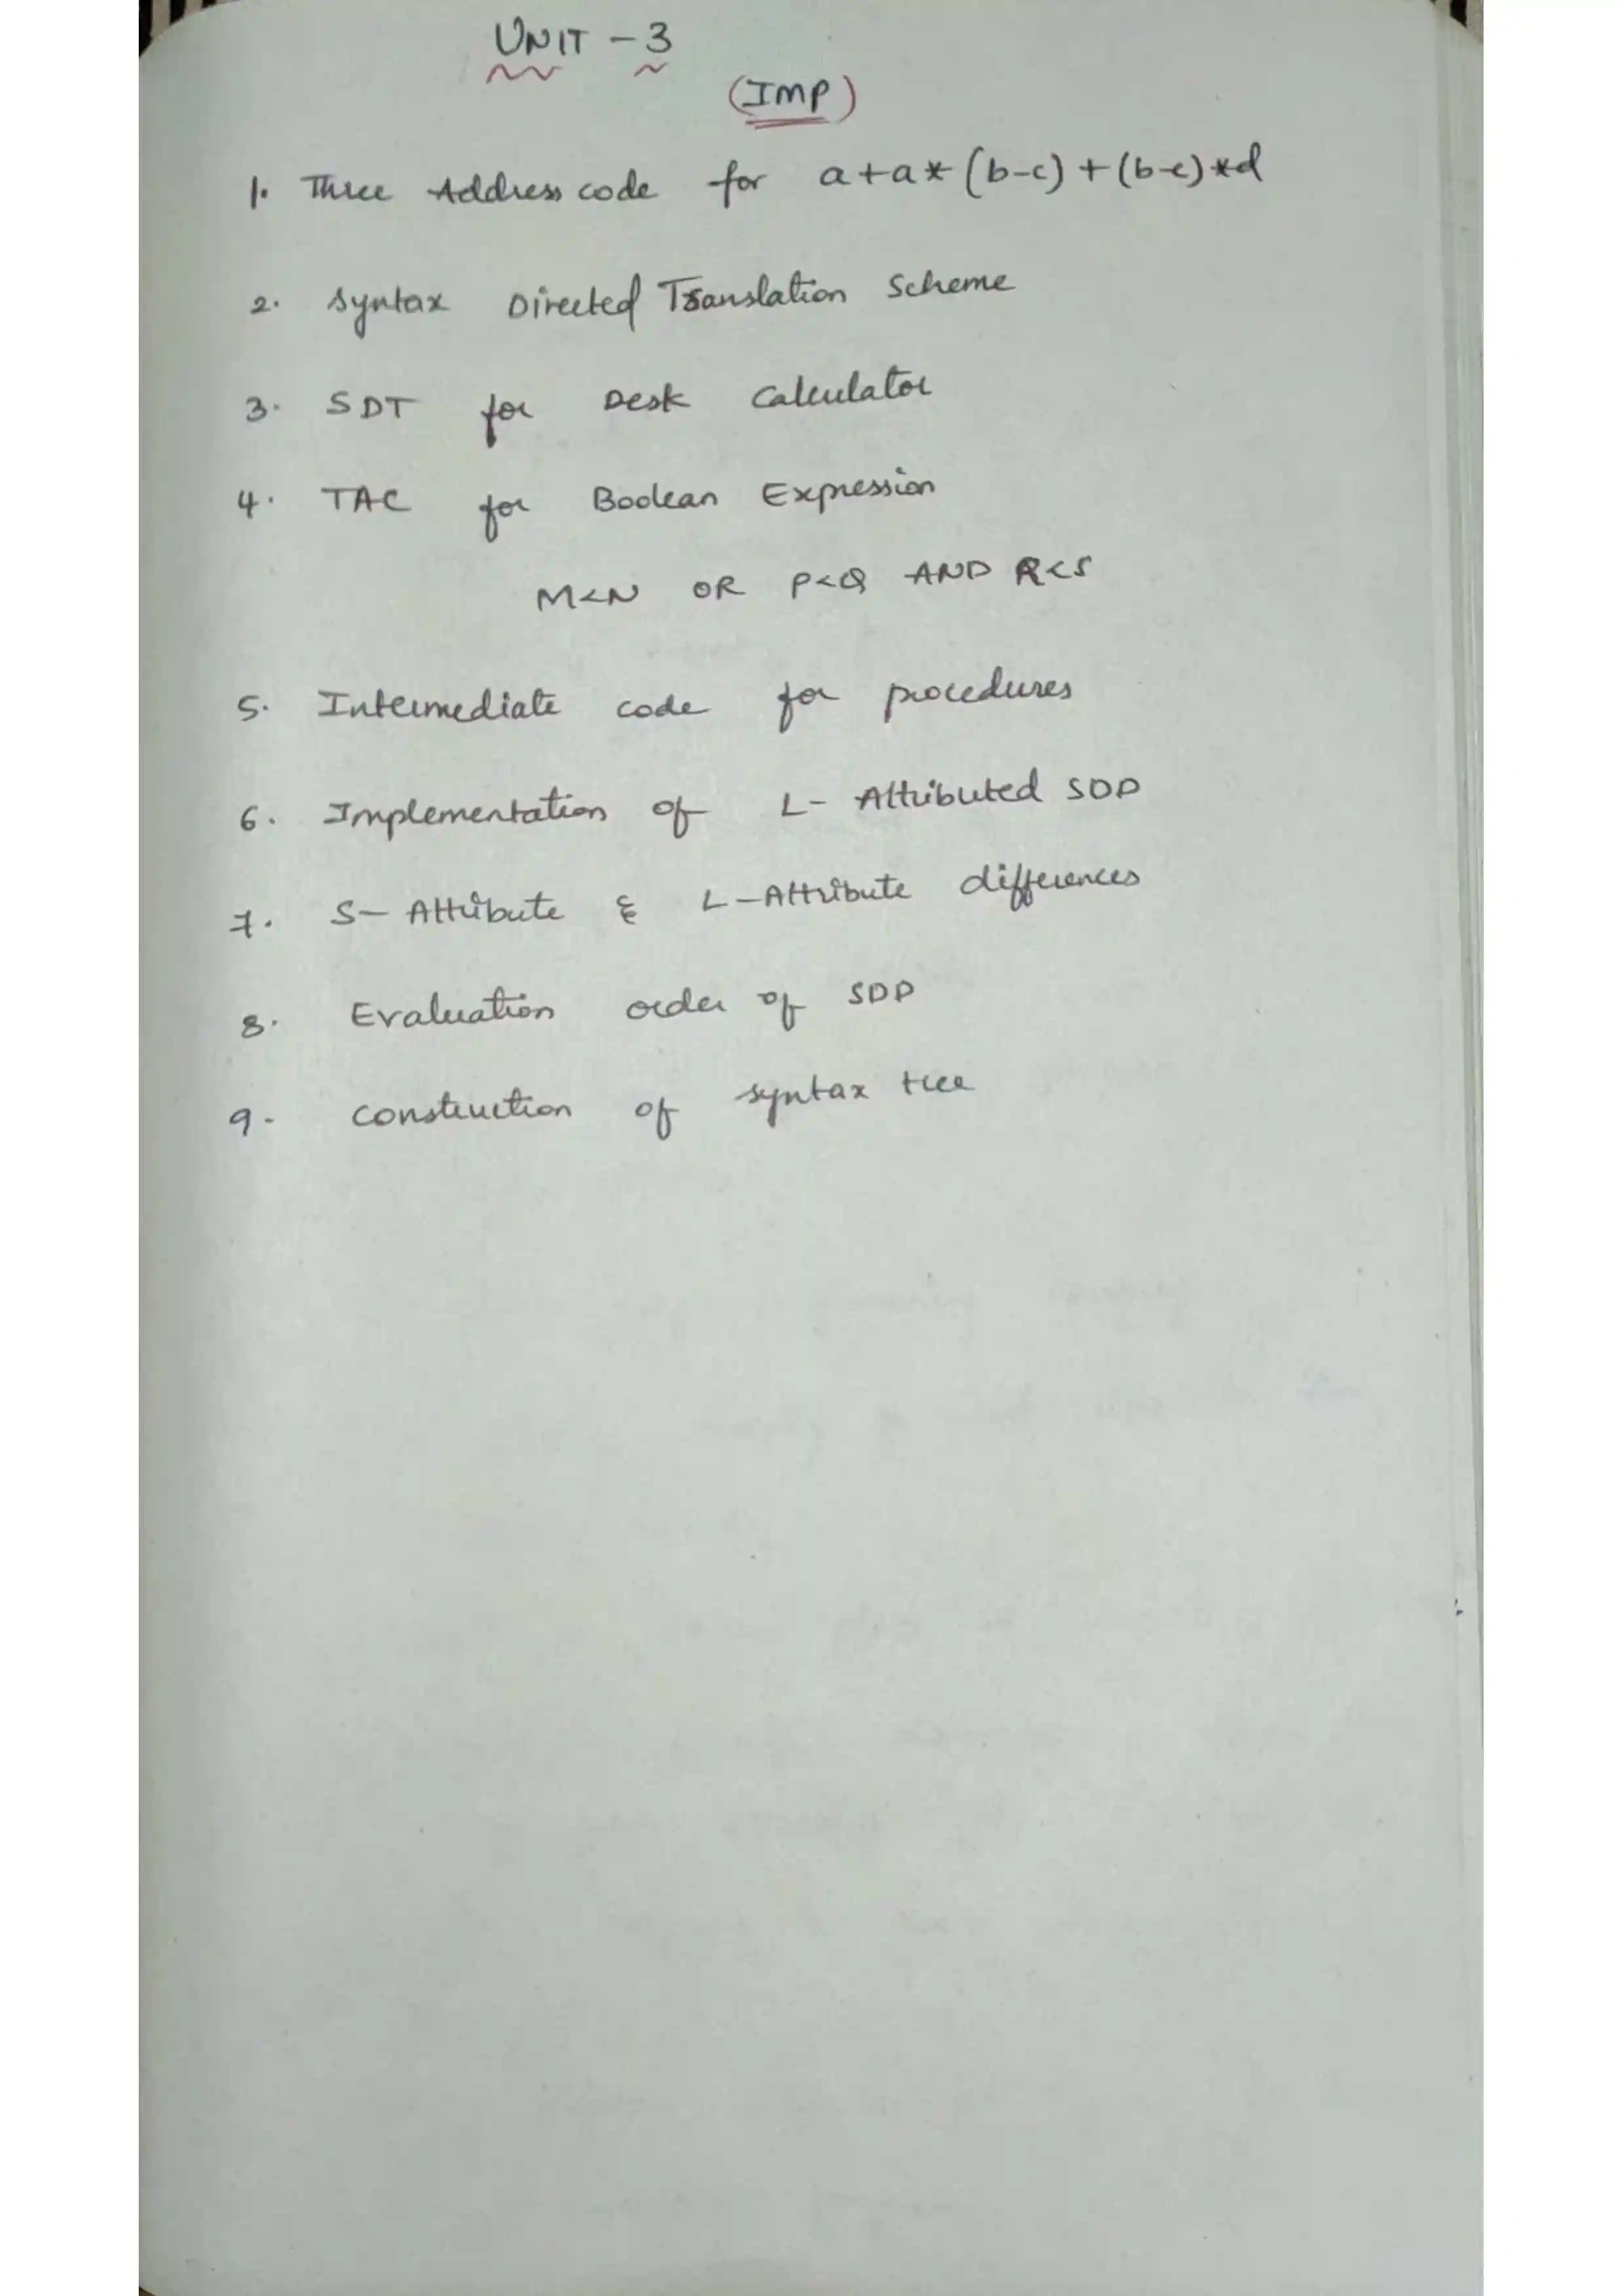 UNIT - 3
(IMP)
1. Three Address code for a+a*(b-c)+(b-c)*d
2. Syntax Directed Translation Scheme
3. SDT for Desk Calculator
4. TAC for Boolean Expression
M<N OR P<Q AND R<S
5. Intermediate code for procedures
6. Implementation of L- Attributed SDD
7. S- Attribute & L-Attribute differences
8. Evaluation order of SDD
9. construction of syntax tree